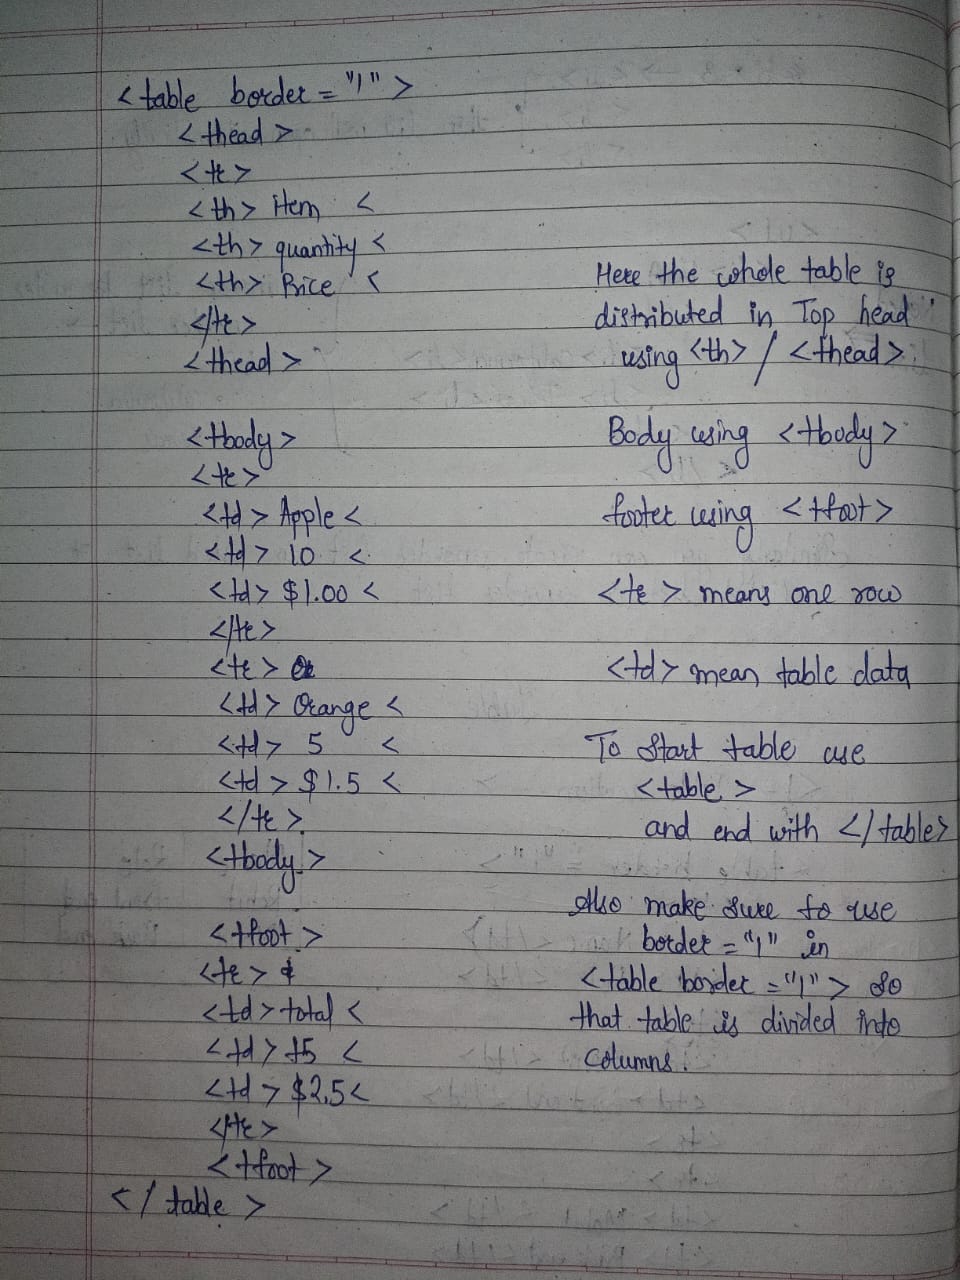 <table border = "1">
<thead>
<tr>
<th> Item <
<th> quantity <
<th> Price <
</tr>
<thead>
<tbody>
<tr>
<td> Apple <
<td> 10 <
<td> $1.00 <
</tr>
<tr>
<td> Orange <
<td> 5 <
<td> $1.5 <
</tr>
<tbody>
<tfoot>
<tr>
<td> total <
<td> 15 <
<td> $2,5 <
</tr>
<tfoot>
</table>
Here the whole table is
distributed in Top head
using <th> / <thead>
Body using <tbody>
footer using <tfoot>
<tr> means one row
<td> mean table data
To Start table use
<table>
and end with </table>
Also make sure to use
border = "1" in
<table border = "1"> so
that table is divided into
columns.